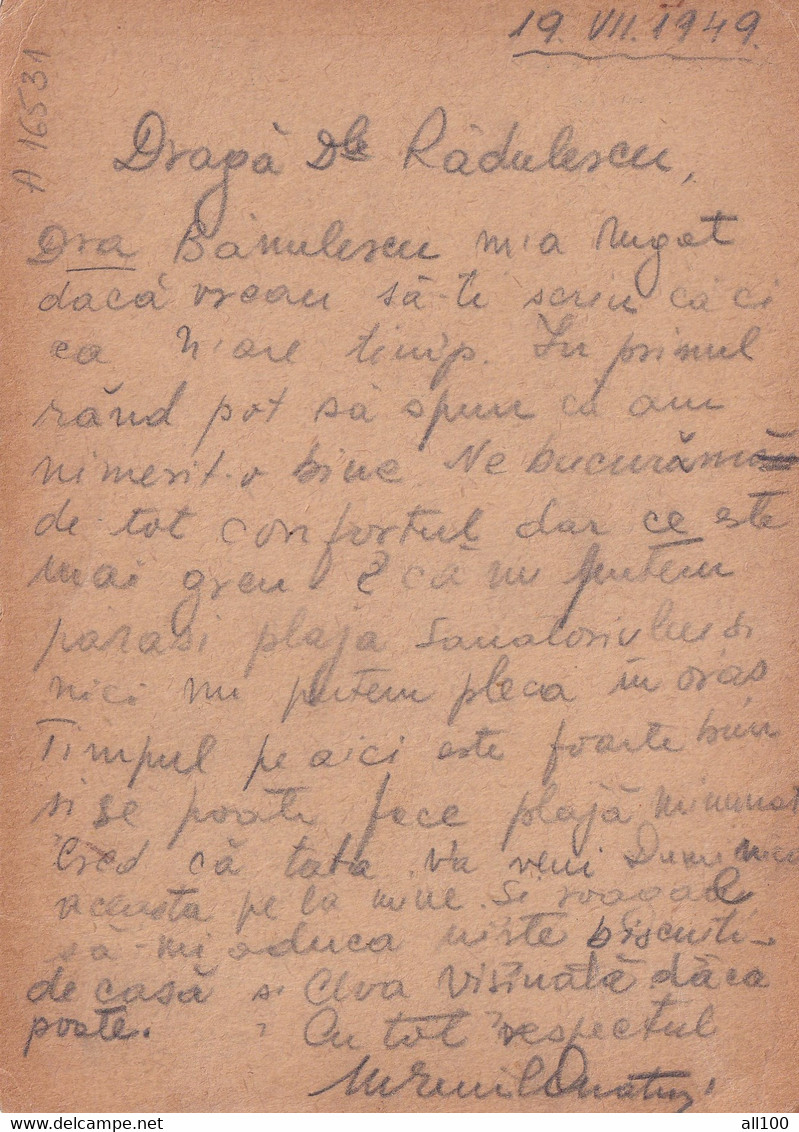 19. VII. 1949.
A 16531
Dragă Dle Rădulescu,
Dra Bănulescu m'a rugat
dacă vreau să-ti scriu că ci
ea n'are timp. In primul
rând pot să spun că am
nimerit-o bine. Ne bucurăm
de tot confortul dar ce este
mai greu e că nu putem
parasi plaja Sanatoriului si
nici nu putem pleca in oras
Timpul pe aici este foarte bun
si se poate face plajă minunat
Cred că tata va veni Dumineca
aceasta pe la mine. Si roagal
să-mi aduca niste biscuiti
de casă si Ceva Visinată dăca
poate.
Cu tot respectul
all100